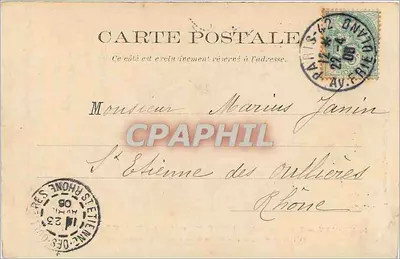 CARTE POSTALE
Ce côté est exclusivement réservé à l'adresse.
PARIS-42 AV. FRIEDLAND
12
22-4
06
Monsieur Marius Janin
St Etienne des oullières
Rhône
ST ETIENNE-DES-OULLIERES RHONE
23
AVRIL
06
CPAPHIL